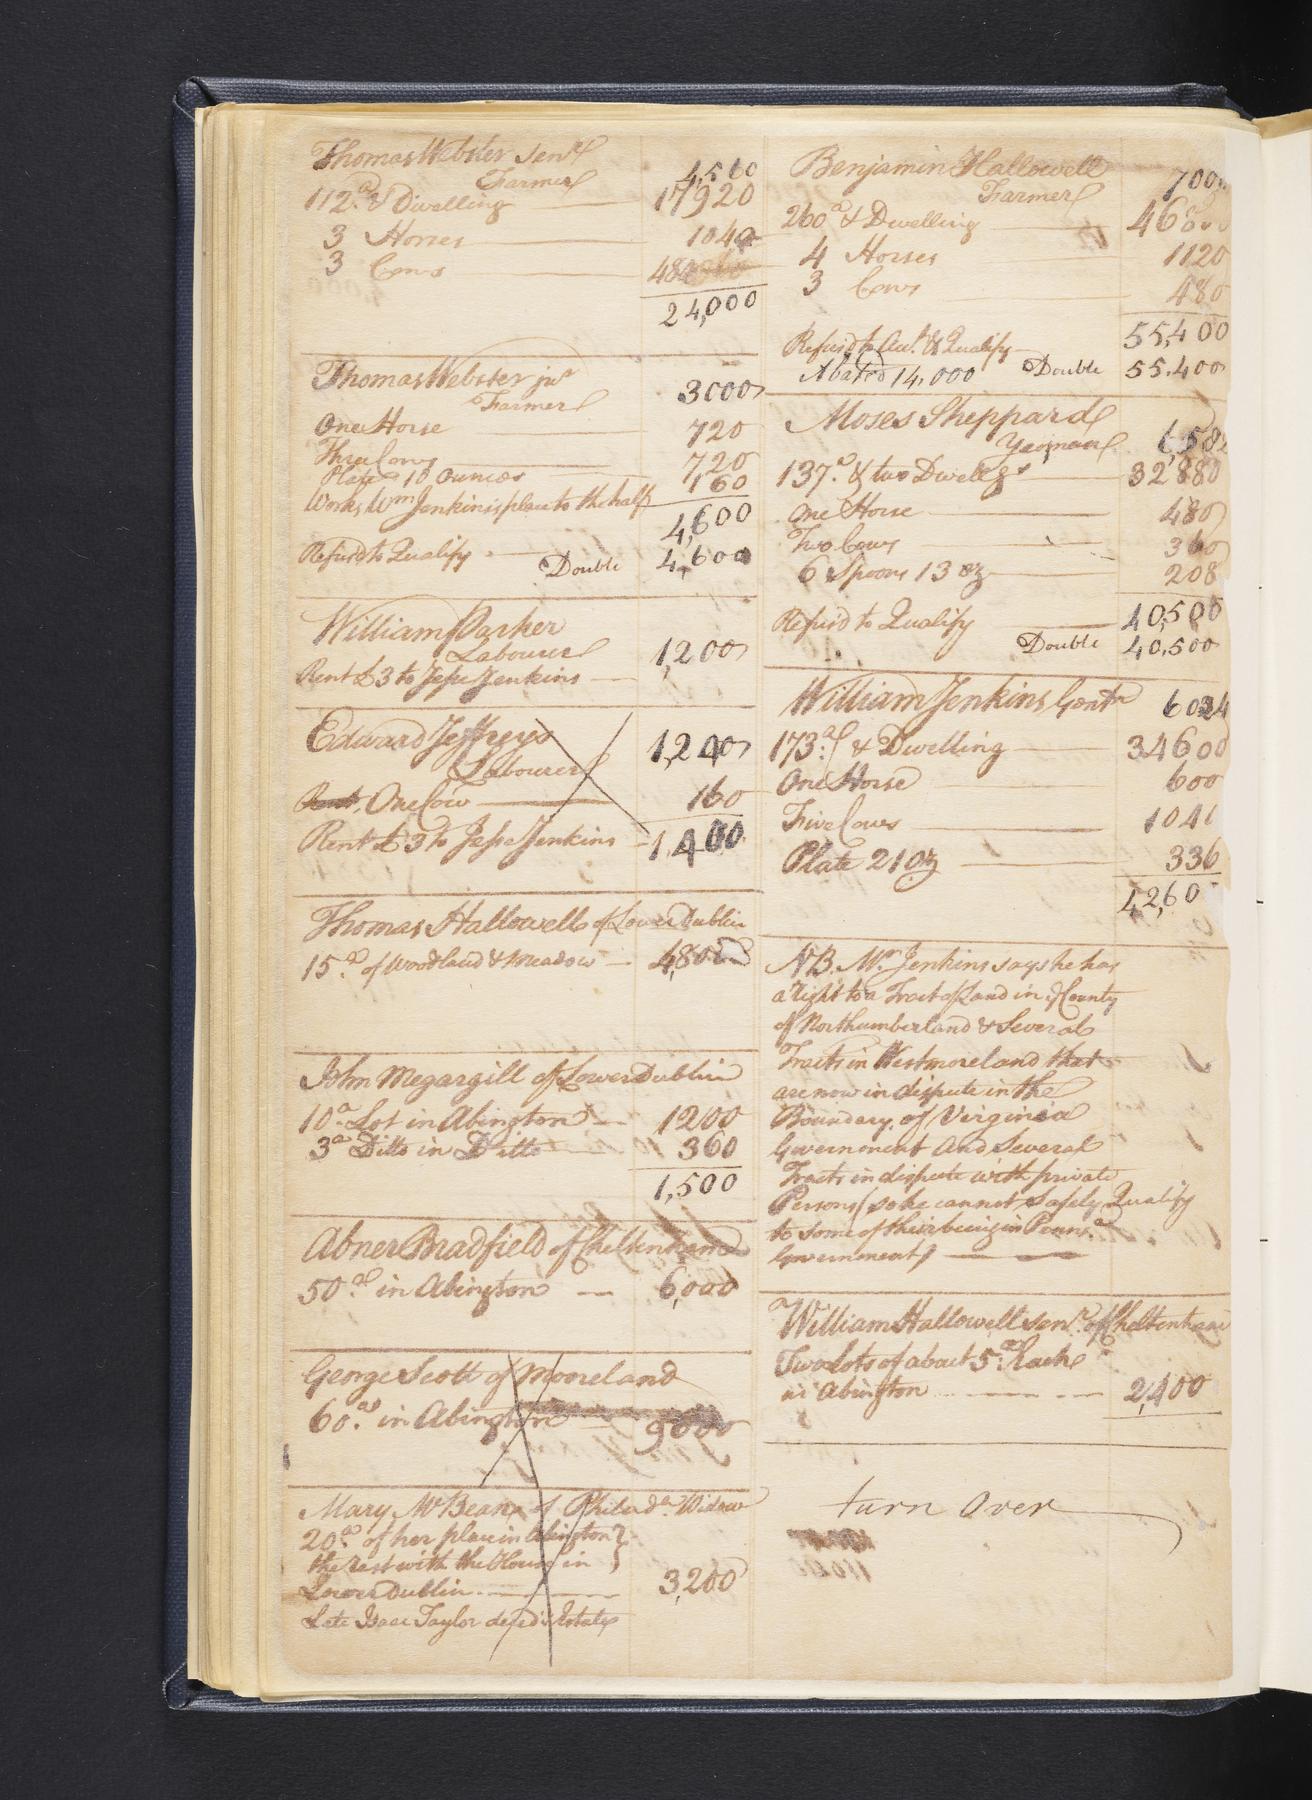 Thomas Webster Senr
Farmer 4,560
112a & Dwelling 17920
3 Horses 1040
3 Cows 480
24,000
Thomas Webster jur
Farmer 3000
One Horse 720
Three Cows 720
Plate 10 Ounces 160
Works Wm Jenkins's place to the half
4,600
Refusd to Qualify Double 4,600
William Parker
Labourer 1,200
Rent £3 to Jesse Jenkins
Edward Jeffreys
Labourer 1,240
Rent, One Cow 160
Rent £3 to Jesse Jenkins 1,400
Thomas Hallowell of Lower Dublin
15.a of Woodland & Meadow 4,800
John Megargill of Lower Dublin
10a Lot in Abington 1200
3a Ditto in Ditto 360
1,500
Abner Bradfield of Cheltenham
50.as in Abington 6,000
George Scott of Mooreland
60.as in Abington 9000
Mary McBean of Philada. Widow
20.as of her place in Abington
the rest with the House in
Lower Dublin 3,200
Late Isaac Taylor decd's Estate
Benjamin Hallowell
Farmer 700
260a & Dwelling 46800
4 Horses 1120
3 Cows 480
55,400
Refusd to & Qualify
Abated 14,000 Double 55,400
Moses Sheppard
Yeoman 6,582
137.a & two Dwellgs 32,880
One Horse 480
Two Cows 360
6 Spoons 13 oz 208
40,500
Refusd to Qualify
Double 40,500
William Jenkins, Gentn 6024
173.as & Dwelling 34600
One Horse 600
Five Cows 104
Plate 21 oz 336
42,60
NB. Mr. Jenkins says he has
a right to a Tract of Land in ye County
of Northumberland & Several
Tracts in Westmoreland that
are now in dispute in the
Boundary, of Virginia
Government And Several
Tracts in dispute with private
Persons (so he cannot Safely Qualify
to some of their being in Penna.
Government)
William Hallowell senr. of Cheltenham
Two Lots of about 5.as Each
in Abington 2,400
turn Over